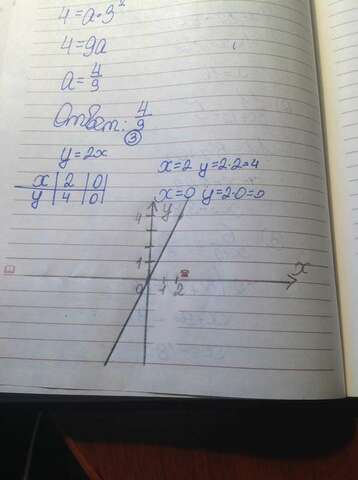 4=a·3²
4=9a
a=4/9
Ответ: 4/9
③
y=2x
x=2 y=2·2=4
x 2 0
y 4 0
x=0 y=2·0=0
y
4
1
0 1 2
x